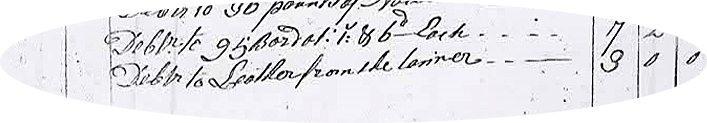 Debtr to 96 pounds of
Debtr to 95 Bord at: 1s: & 6d Each - - - - 7 2
Debtr to Leather from the tanner - - - — 3 0 0